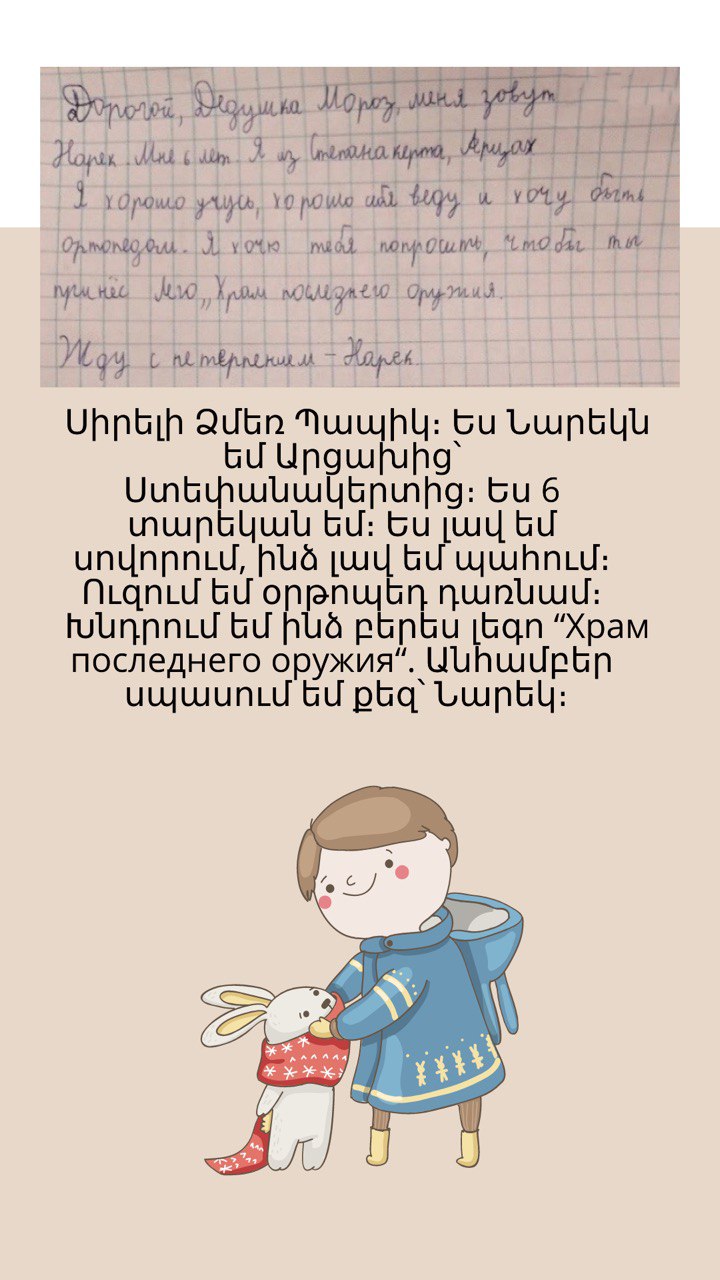 Дорогой, Дедушка Мороз, меня зовут
Нарек. Мне 6 лет. Я из Степанакерта, Арцах
Я хорошо учусь, хорошо себя веду и хочу быть
ортопедом. Я хочу тебя попросить, чтобы ты
принёс Лего „Храм последнего оружия.
Жду с нетерпением – Нарек.
Սիրելի Ձմեռ Պապիկ։ Ես Նարեկն
եմ Արցախից՝
Ստեփանակերտից։ Ես 6
տարեկան եմ։ Ես լավ եմ
սովորում, ինձ լավ եմ պահում։
Ուզում եմ օրթոպեդ դառնամ։
Խնդրում եմ ինձ բերես լեգո “Храм
последнего оружия“. Անհամբեր
սպասում եմ քեզ՝ Նարեկ։